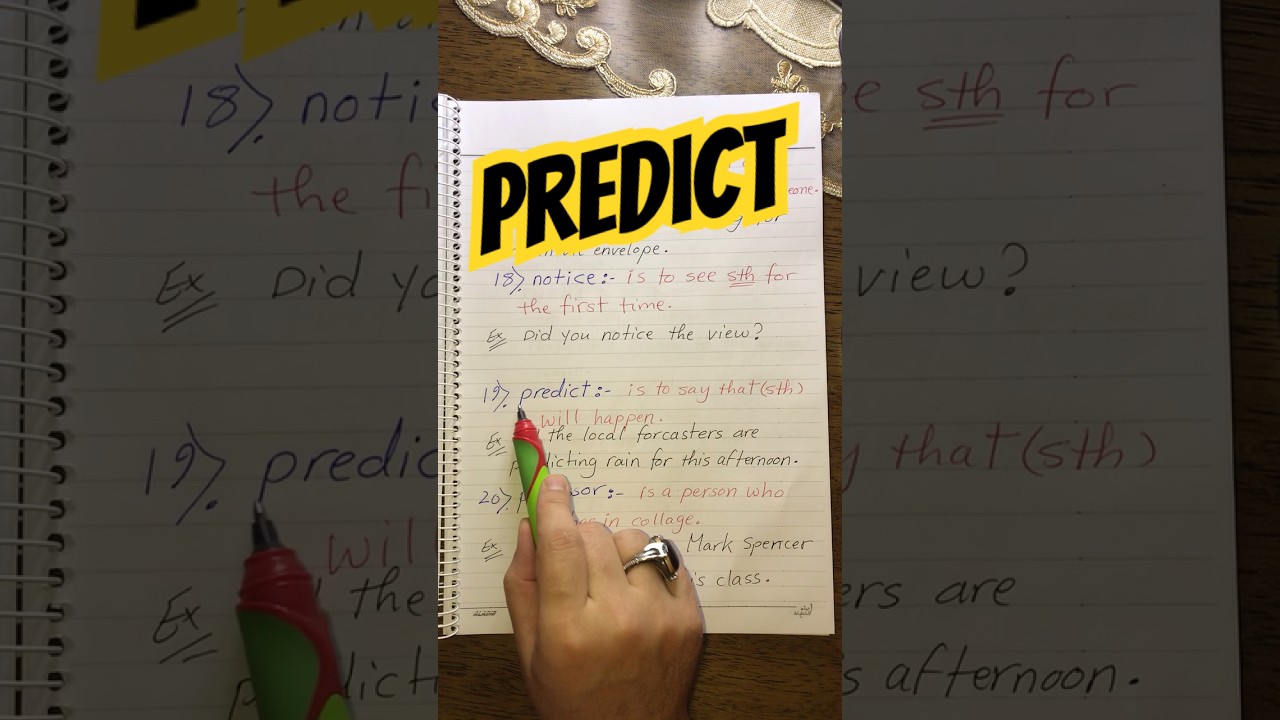 PREDICT
eone.
envelope.
18). notice:- is to see sth for
the first time.
Ex Did you notice the view?
19). predict:- is to say that (sth)
will happen.
Ex the local forcasters are
predicting rain for this afternoon.
20). is a person who
in collage.
Ex Mark Spencer
is class.